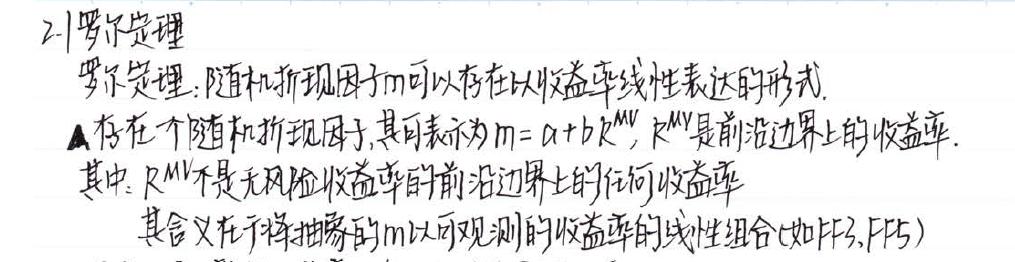 2.1 罗尔定理
罗尔定理:随机折现因子m可以存在以收益率线性表达的形式.
▲存在一个随机折现因子,其可表示为m=a+bR^MV, R^MV是前沿边界上的收益率.
其中: R^MV不是无风险收益率的前沿边界上的任何收益率
其含义在于将抽象的m以可观测的收益率的线性组合(如FF3,FF5)